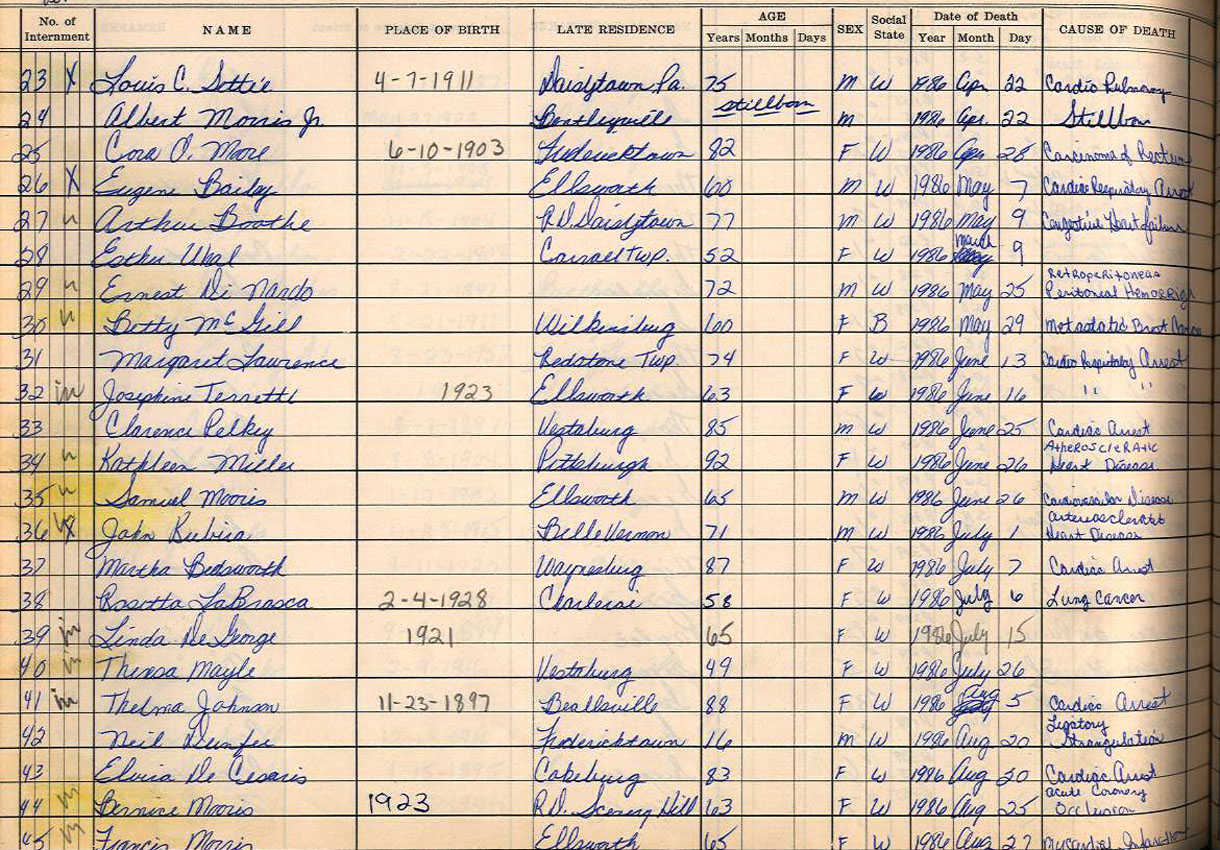 No. of Internment NAME PLACE OF BIRTH LATE RESIDENCE AGE Years Months Days SEX Social State Date of Death Year Month Day CAUSE OF DEATH
23 X Louis C. Settie 4-7-1911 Daisytown Pa. 75 M W 1986 Apr 22 Cardio Pulmonary
24 Albert Morris Jr. Bentleyville stillborn M 1986 Apr. 22 Stillborn
25 Cora O. Moore 6-10-1903 Fredericktown 82 F W 1986 Apr 28 Carcinoma of Rectum
26 X Eugene Baily Ellsworth 60 M W 1986 May 7 Cardiac Respiratory Arrest
27 Arthur Boothe R.D. Daisytown 77 M W 1986 May 9 Congestive Heart failure
28 Esther Ukal Carroll Twp. 52 F W 1986 March 9
29 Ernest Di Nardo 72 M W 1986 May 25 Retroperitoneas Peritoneal Hemorrige
30 Betty McGill Wilkinsburg 60 F B 1986 May 29 Metastatic Breast
31 Margaret Lawrence Redstone Twp. 74 F W 1986 June 13 Cardio Respiratory Arrest
32 in Josephine Terretti 1923 Ellsworth 63 F W 1986 June 16 " "
33 Clarence Pelkey Vestaburg 85 M W 1986 June 25 Cardiac Arrest
34 Kathleen Miller Pittsburgh 92 F W 1986 June 26 Atheroscleratic Heart Disease
35 Samuel Mooris Ellsworth 65 M W 1986 June 26 Cardiovascular Disease
36 X John Kubica Belle Vernon 71 M W 1986 July 1 Heart Disease
37 Martha Bedsworth Waynesburg 87 F W 1986 July 7 Cardiac Arrest
38 Rosetta LaBrasca 2-4-1928 Charleroi 58 F W 1986 July 6 Lung Cancer
39 in Linda De George 1921 65 F W 1986 July 15
40 Theresa Mayle Vestaburg 49 F W 1986 July 26
41 in Thelma Johnson 11-23-1897 Beallsville 88 F W 1986 Aug 5 Cardiac Arrest
42 Neil Fredericktown 16 M W 1986 Aug 20 Legatory Strangulation
43 Elvira De Cesaris Cokeburg 83 F W 1986 Aug 20 Cardiac Arrest
44 Bernice Mooris 1923 R.D. Scenery Hill 63 F W 1986 Aug 25 acute Coronary Occlusion
45 Francis Morris Ellsworth 65 F W 1986 Aug 27 Myocardial Infarction